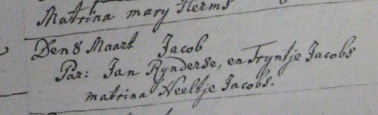 Matrina mary Herms
Den 8 Maart Jacob
Par: Jan Rynderse, en Tryntje Jacobs
matrina Neeltje Jacobs.